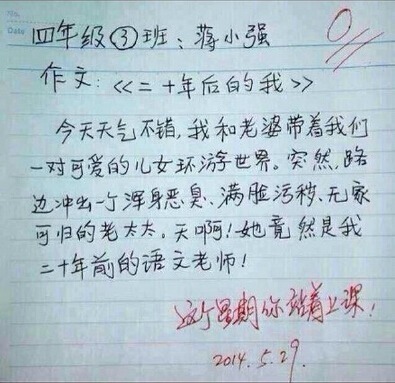 Date
四年级③班:蒋小强
0
作文:<<二十年后的我>>
今天天气不错,我和老婆带着我们
一对可爱的儿女环游世界。突然,路
边冲出一个浑身恶臭、满脸污秽、无家
可归的老太太。天啊!她竟然是我
二十年前的语文老师!
这个星期你站着上课!
2014.5.29.